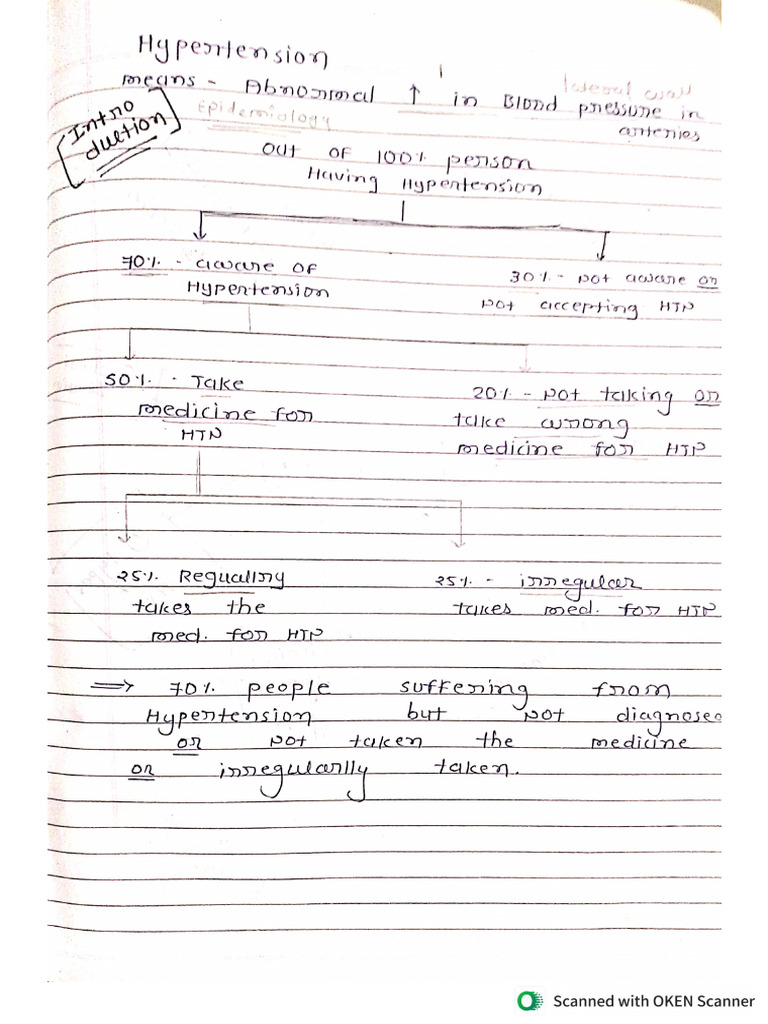 Hypertension
means - Abnormal ↑ in Blood pressure in lateral wall arteries
[Intro
duction]
Epidemiology
out of 100% person
Having Hypertension
70% - aware of
Hypertension
30% - not aware or
not accepting HTN
50% - Take
medicine for
HTN
20% - not taking or
take wrong
medicine for HTN
25% Reguallry
takes the
med. for HTN
25% - irregular
takes med. for HTN
⇒ 70% people suffering from
Hypertension but not diagnosed
or not taken the medicine
or irregularlly taken.
Scanned with OKEN Scanner